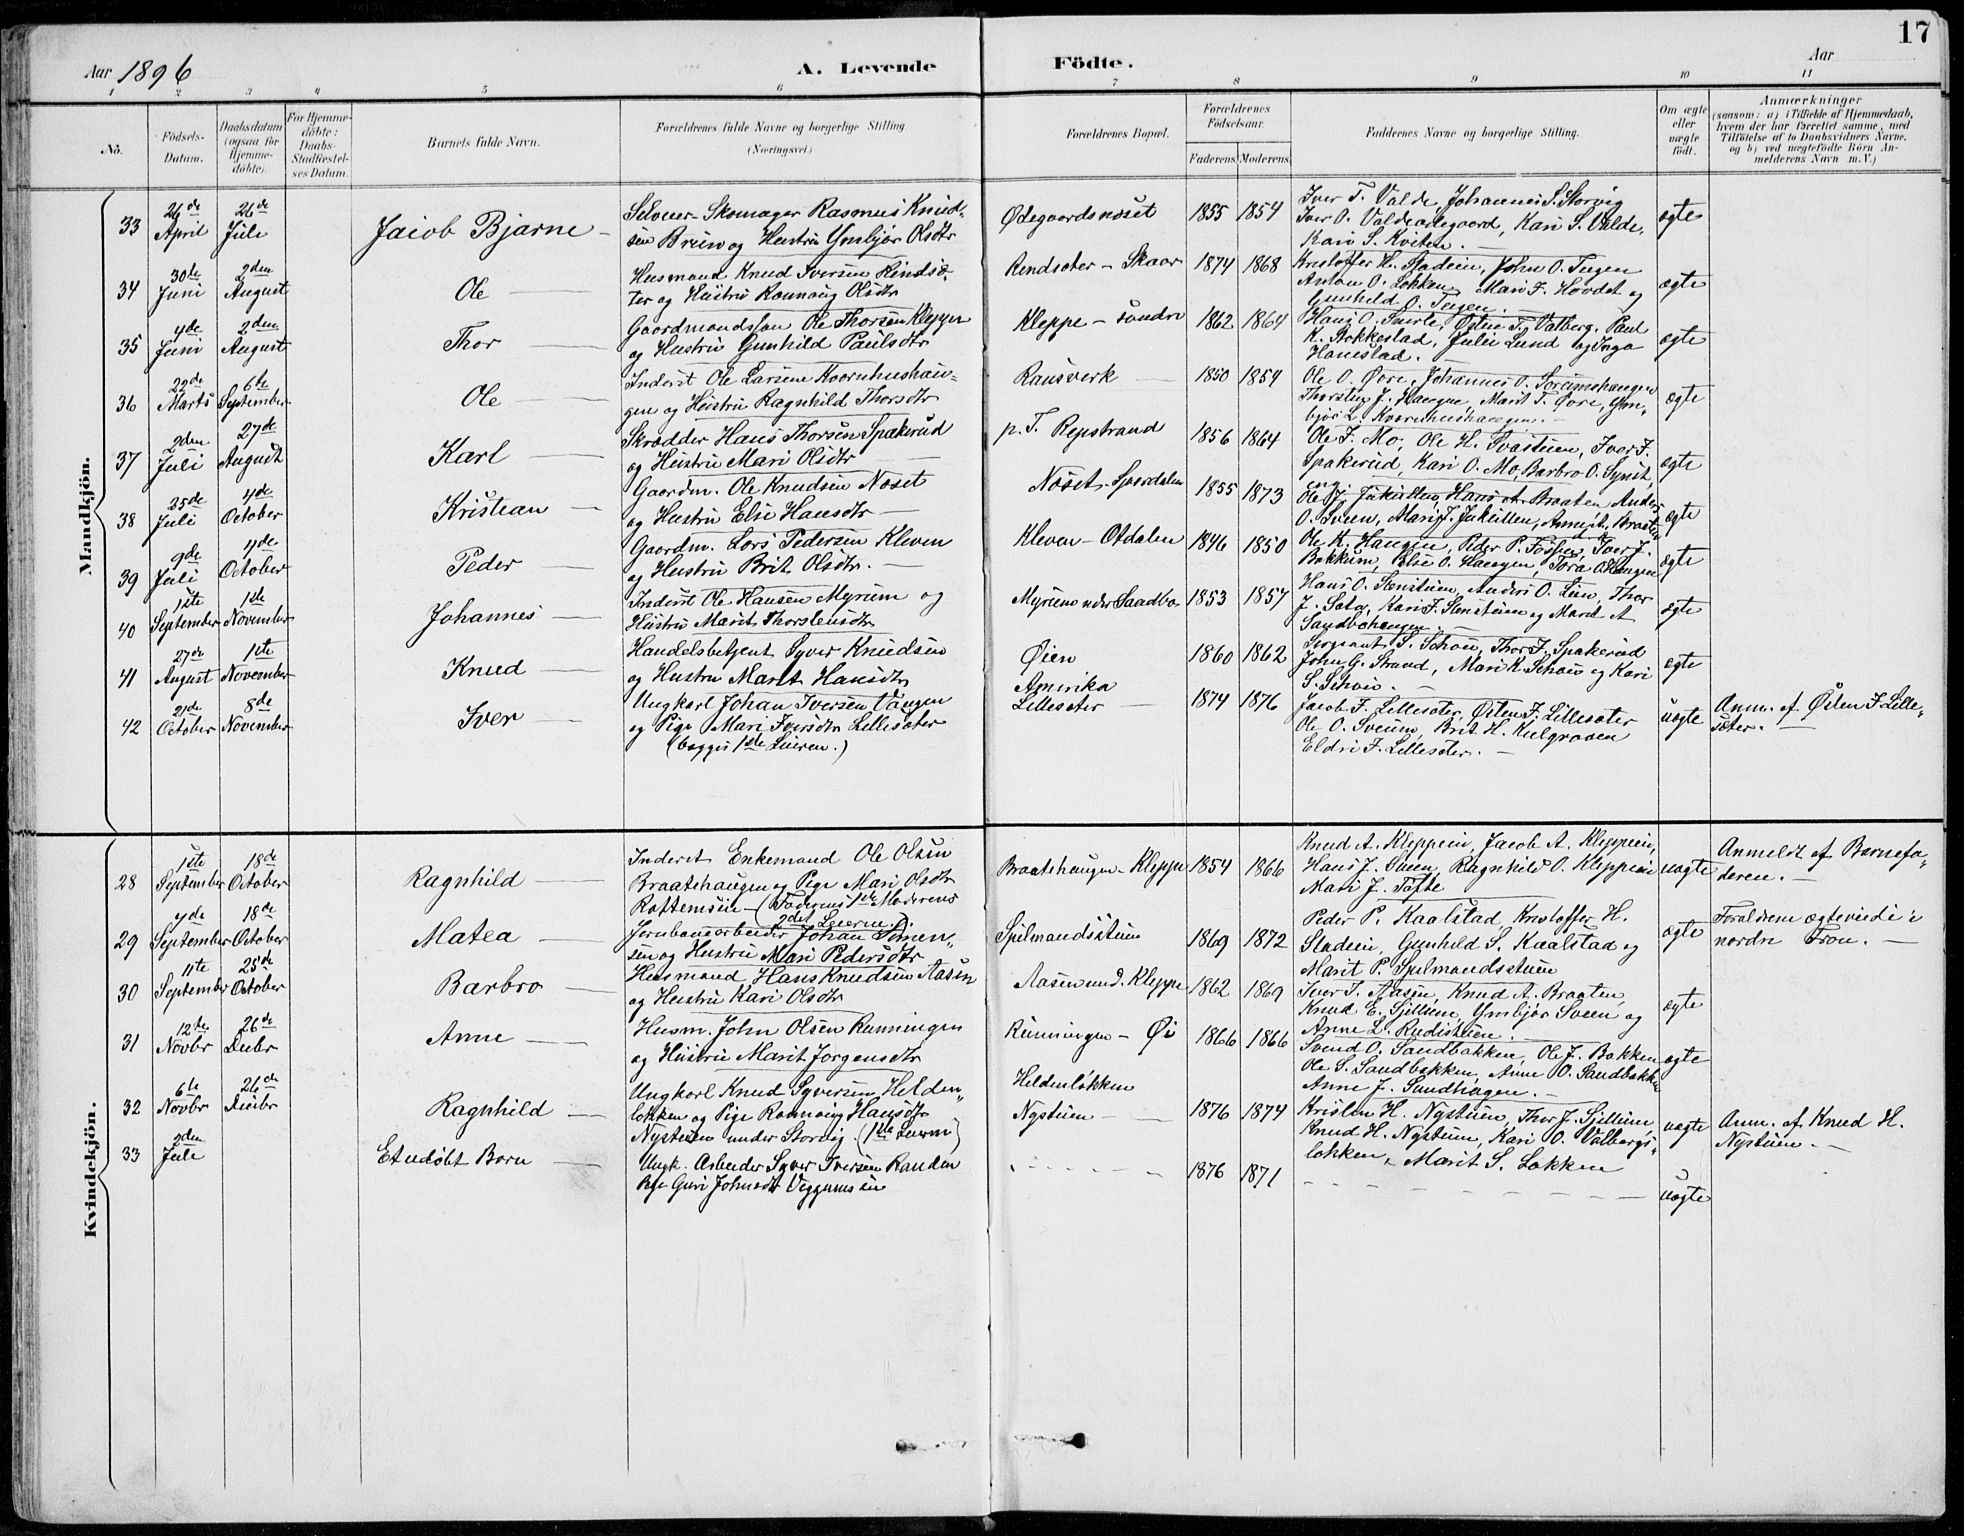 17
Aar 1896
A. Levende Födte.
Aar
1 2 3 4 5 6 7 8 9 10 11
No.
Födsels-Datum.
Daabsdatum (ogsaa for Hjemmedöbte).
For Hjemmedöbte: Daabs-Stadfæstelses Datum.
Barnets fulde Navn.
Forældrenes fulde Navne og borgerlige Stilling (Næringsvei)
Forældrenes Bopæl.
Forældrenes Födselsaar.
Faderens. Moderens.
Faddernes Navne og borgerlige Stilling.
Om ægte eller uægte födt.
Anmærkninger
(saasom: a) i Tilfælde af Hjemmedaab, hvem der har forrettet samme, med Tilföielse af to Daabsvidners Navne, og b) ved uægtefödte Börn Anmelderens Navn m.V.)
Mandkjön.
33 26de April 26de Juli Jacob Bjarne Selveier Skomager Rasmus Knud-
sen Bruun og Hustru Ymbjør Olsdtr Ødegaardsnæset 1855 1854 Iver T. Valde, Johannes S. Storvig
Iver O. Valdeødegaard, Kari S. Valde,
Kari S. Kviten. ægte
34 30te Juni 2den August Ole Husmand Knud Iversen Rindsæ-
ter og Hustru Ronnaug Olsdtr Rendsæter - Skaar 1874 1868 Kristoffer H. Stadein, John O. Teigen
Anton O. Løkken, Mari F. Hovdet og
Gunhild O. Teigen. ægte
35 4de Juni 2den August Thor Gaardmandssøn Ole Thorsen Kleppe
og Hustru Gunhild Paulsdtr Kleppe - søndre 1862 1864 Hans O. Snerle, Østen T. Valberg, Paul
K. Stokkestad, Julie Lund og Inga
Hanestad. ægte
36 22de Marts 6te September Ole Inderst Ole Larsen Kvornhushau-
gen og Hustru Ragnhild Thorsdtr Randsverk 1850 1854 Ole O. Øvre, Johannes O. Soreimshaugen
Thorsten J. Haugen, Marit T. Øvre, Ym-
bjør L. Kvornhushaugen. ægte
37 2den Juli 27de August Karl Skrædder Hans Thorsen Spakerud
og Hustru Mari Olsdtr p.T. Repstrand 1856 1864 Ole J. Mo, Ole H. Svastuen, Iver F.
Spakerud, Kari O. Mo, Barbro O. Synst-
eng. ægte
38 25de Juli 4de October Kristian Gaardm. Ole Knudsen Næset
og Hustru Else Hansdtr Næset - Sjoerdalen 1855 1873 Ole J. Jukullen, Hans A. Braaten, Anders
O. Sveen, Mari J. Jukullen, Anne A. Braaten ægte
39 9de Juli 4de October Peder Gaardm. Lars Pedersen Kleven
og Hustru Brit Olsdtr. Kleven - Otdalen 1846 1850 Ole K. Haugen, Peder P. Fosse, Iver J.
Bakkum, Else O. Haugen, Tora O. Haugen ægte
40 1ste September 1ste November Johannes Inderst Ole Hansen Myrum og
Hustru Marit Thorstensdtr Myrum under Sandbo 1853 1857 Hans O. Stenstuen, Anders O. Lien, Thor
J. Sata, Kari F. Stenstuen og Marit A.
Sandbohaugen. ægte
41 27de August 1ste November Knud Handelsbetjent Syver Knudsen
og Hustru Marit Hansdtr Øien 1860 1862 Sergeant S. Schou, Thor F. Spakerud
John G. Strand, Mari K. Schou og Kari
S. Schou. ægte
42 21de October 8de November Iver Ungkarl Johan Iversen Vangen
og Pige Mari Iversdtr Lillesæter
(begges 1ste Leieren.) Amerika
Lillesæter 1874 1876 Jacob F. Lillesæter, Østen F. Lillesæter
Ole O. Sveum, Brit H. Kulgraven
Eldri F. Lillesæter. uægte Anm. af Østen F. Lille-
sæter.
Kvindekjön.
28 1ste September 18de October Ragnhild Inderst Enkemand Ole Olsen
Braatehaugen og Pige Mari Olsdtr
Rottemsøien - (Faderens 1ste Moderens
2det Leierm.). Braatehaugen - Kleppe 1854 1866 Knud A. Kleppein, Jacob A. Kleppein,
Hans J. Sveen, Ragnhild O. Kleppein
Mati J. Tofte uægte Anmeldt af Barnefa-
deren.
29 4de September 18de October Matea Jernbanearbeider Johan Simen-
sen og Hustru Mari Pedersdtr Spelmandsstuen 1869 1872 Peder P. Kaalstad, Kristoffer H.
Stadein, Gunhild S. Kaalstad og
Marit P. Spelmandsstuen ægte Forældrene ægteviede i
nordre Fron.
30 11te September 25de October Barbro Husmand Hans Knudsen Aasen
og Hustru Kari Olsdtr Aasen und. Kleppe 1862 1869 Iver T. Aasen, Knud A. Braaten,
Knud E. Sjellum, Ymbjør Sveen og
Anne L. Rudistuen. ægte
31 12te Novbr 26de Decbr Anne Husm. John Olsen Runningen
og Hustru Marit Jørgensdtr Runningen - Øi 1866 1866 Svend O. Sandbakken, Ole J. Bakken
Ole S. Sandbakken, Anne O. Sandbakken
Anne J. Sandhaugen. ægte
32 6te Novbr 26de Decbr Ragnhild Ungkarl Knud Syversen Helden-
løkken og Pige Ronnaug Hansdtr
Nystuen under Storvig. (1ste Leierm) Heldenløkken
Nystuen 1876 1874 Kristen H. Nystuen, Thor J. Sjellum,
Knud H. Nystuen, Kari O. Valbergs-
løkken, Marit S. Løkken uægte Anm. af Knud H.
Nystuen.
33 2den Juli Et udøbt Barn Ungk. Arbeider Syver Iversen Randen
Pige Guri Johnsdtr Veggumsøien 1876 1871 uægte